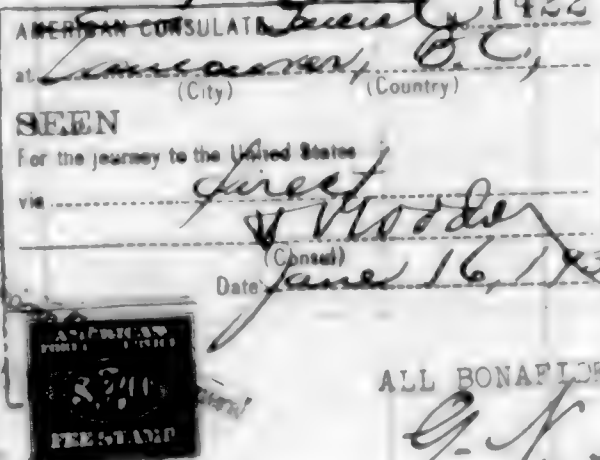 AMERICAN CONSULATE
1422
at Vancouver, B.C.,
(City) (Country)
SEEN
For the journey to the United States
via direct
(Consul)
Date June 16, 192
AMERICAN
FEE STAMP
ALL BONAFIDE
G.